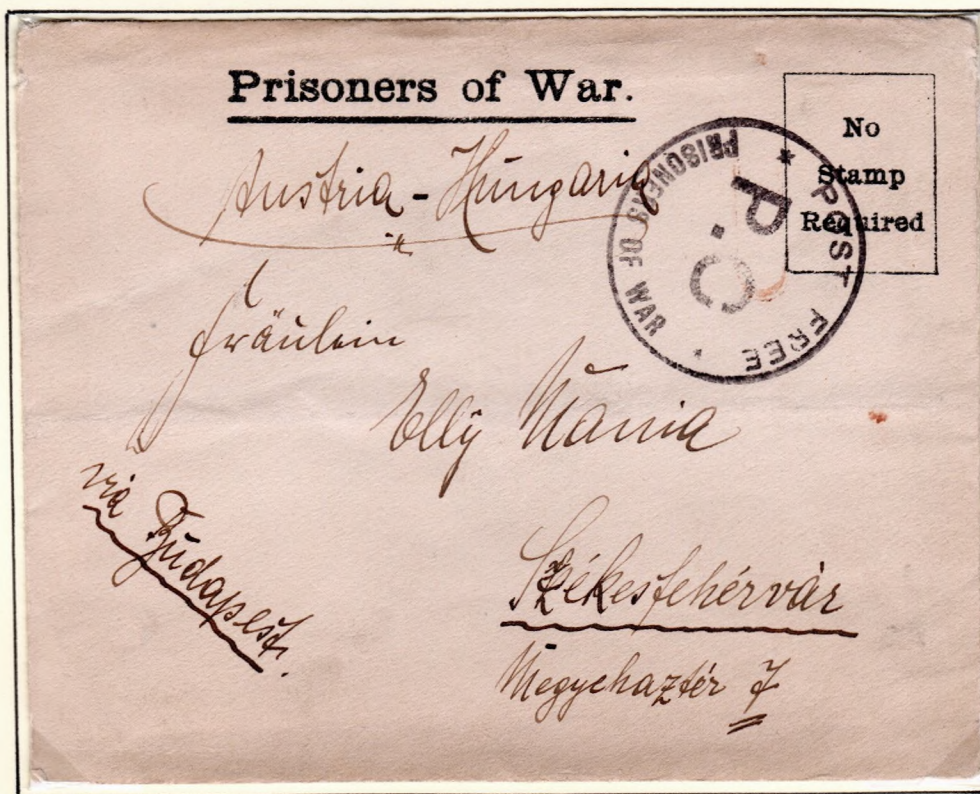 Prisoners of War.
No
Stamp
Required
POST FREE
PRISONERS OF WAR
P.C.
Austria-Hungaria
Fräulein
Elly Mania
via Budapest.
Székesfehérvár
Megyehaztér 7